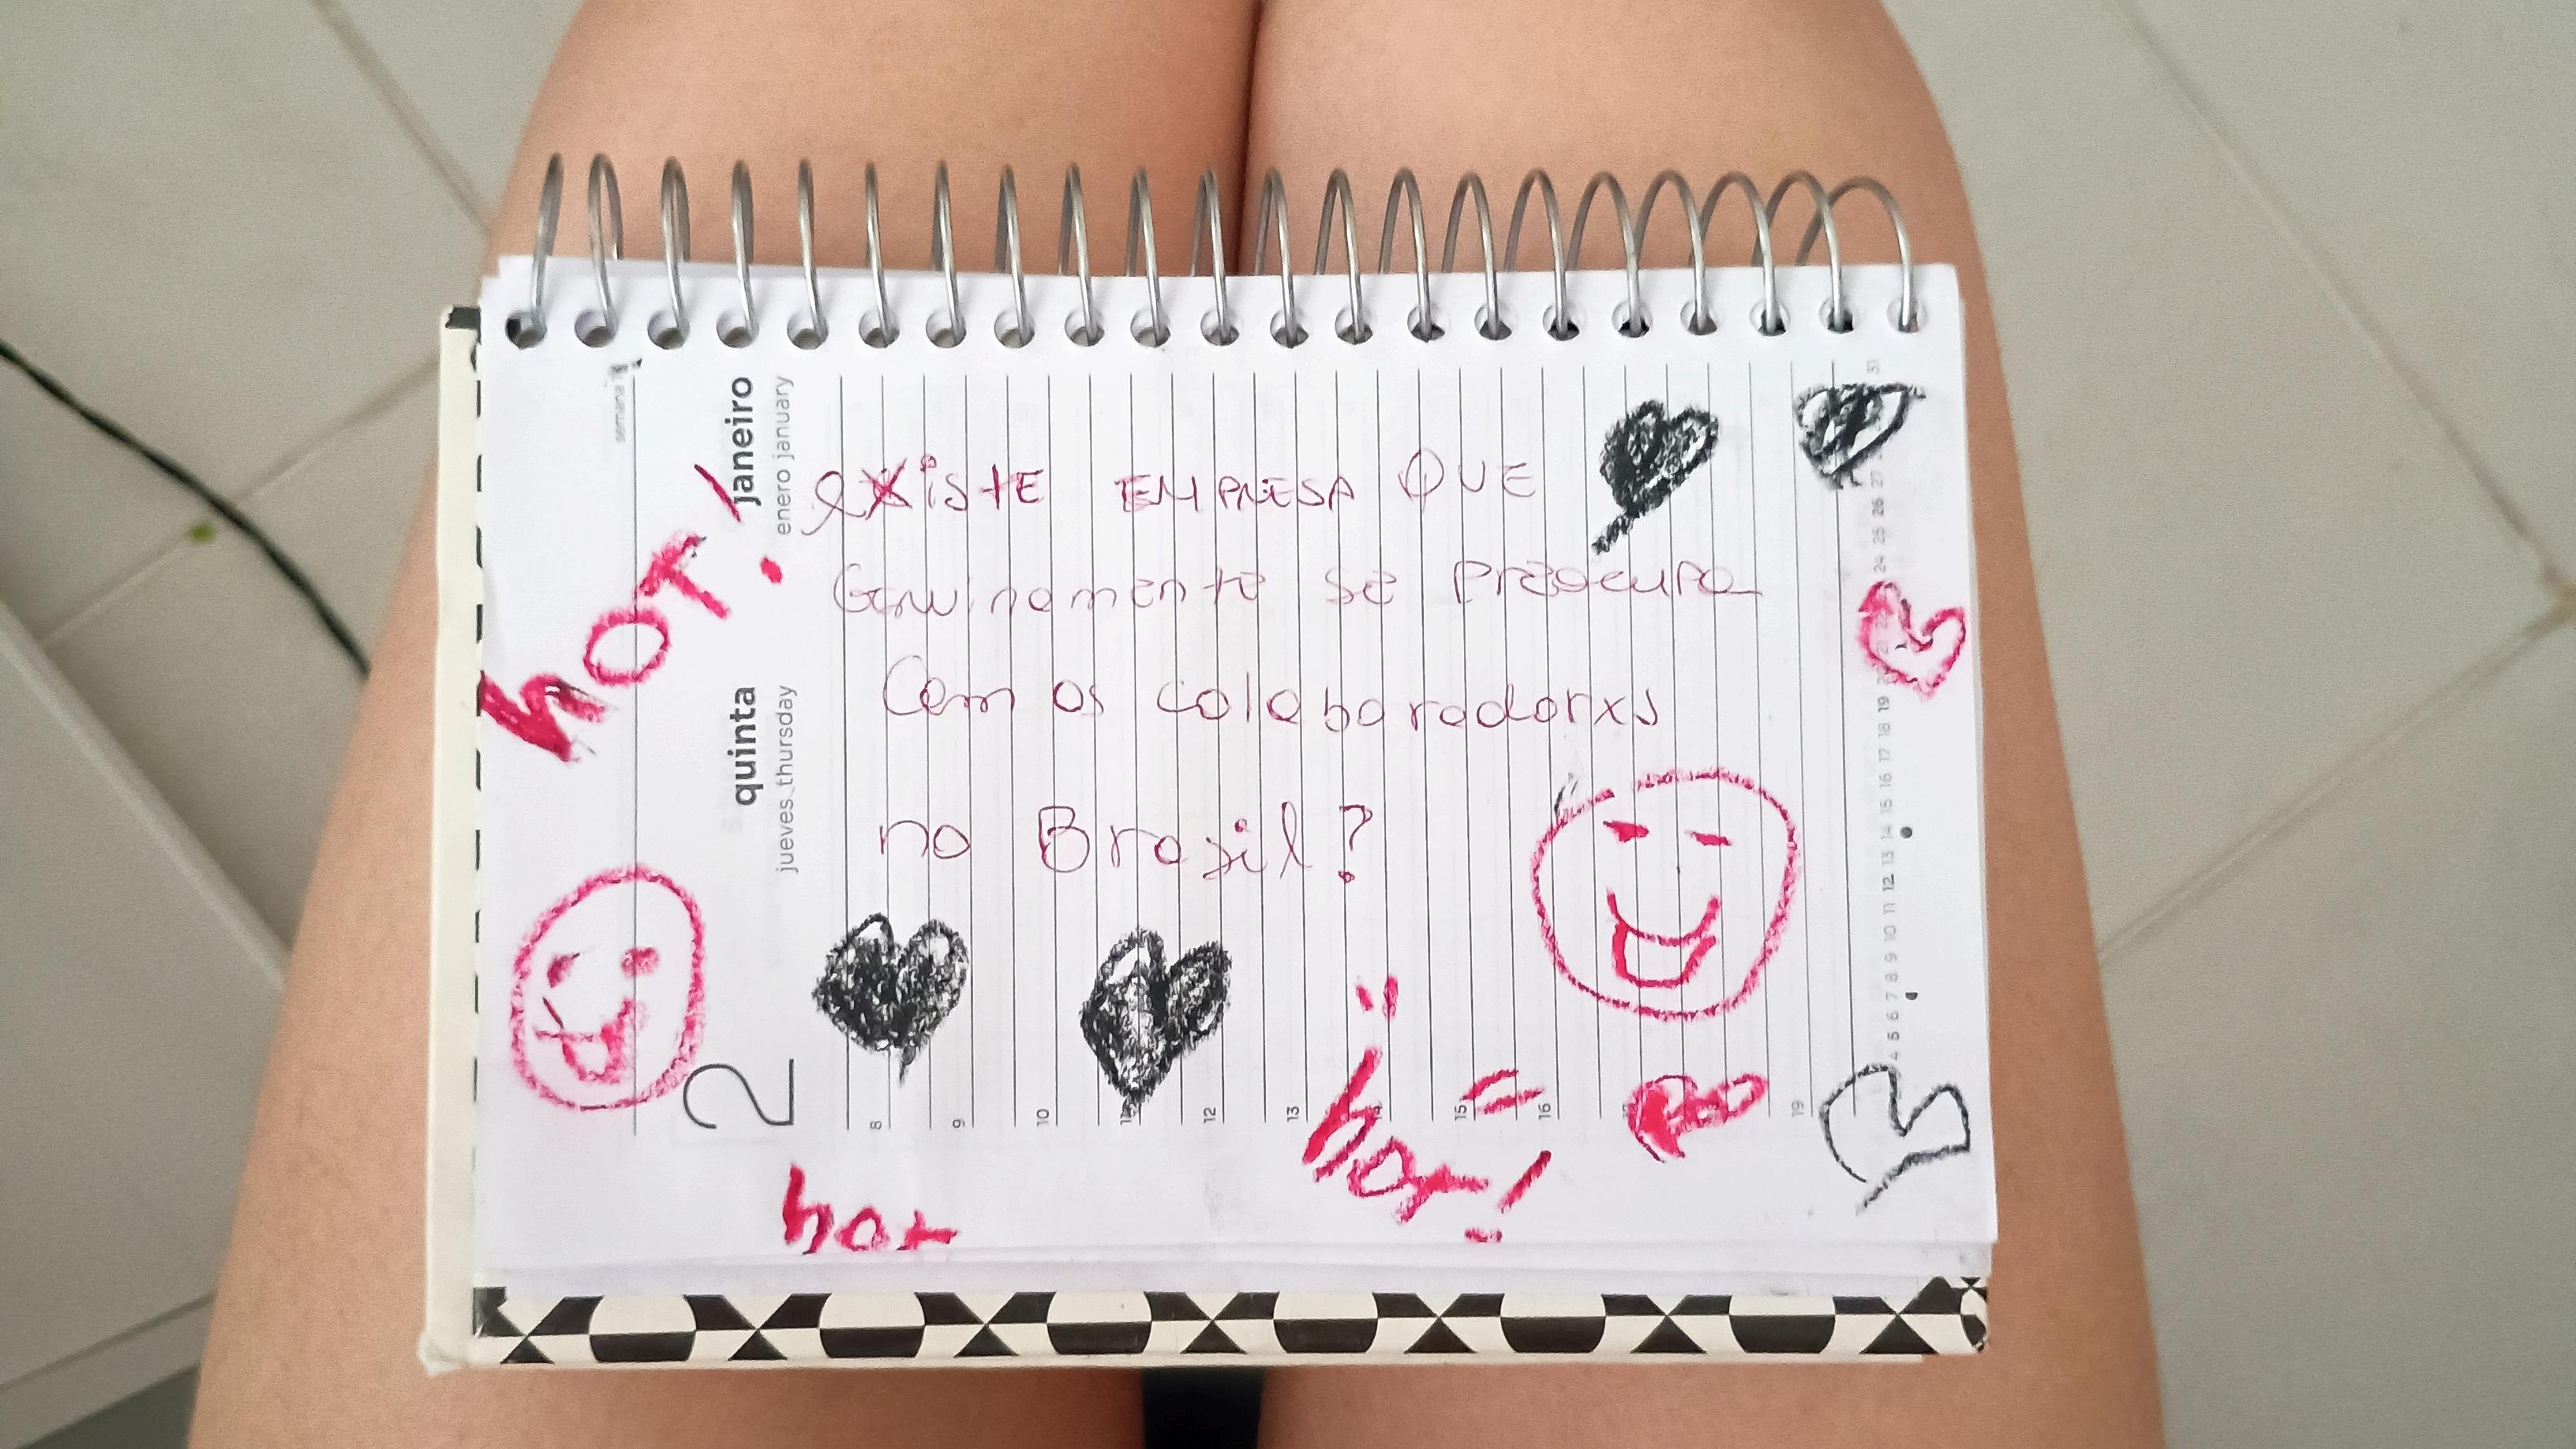 semana 1
janeiro
enero january
quinta
jueves thursday
2
hOT!
eXiStE EMPRESA QUE
Genuinamente se preocupa
Com os colaboradorxs
no Brasil?
8
9
10
12
13
14
15
16
19
hot
hot!
4 5 6 7 8 9 10 11 12 13 14 15 16 17 18 19
24 25 26 27
31